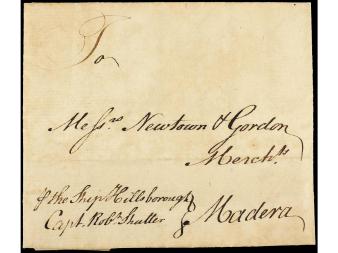 To
Messrs Newtown & Gordon
Merchts
the Ship Hillsborough
Capt. Robt Shutter
Madera